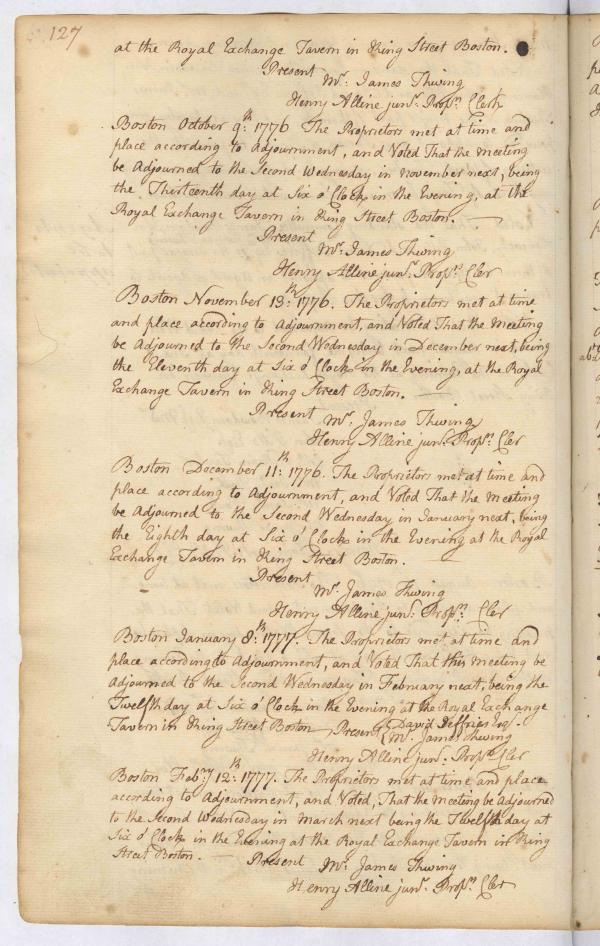 127
at the Royal Exchange Tavern in King Street Boston.
Present
Mr. James Thwing
Henry Alline junr. Proprs. Clerk
Boston October 9th. 1776 The Proprietors met at time and
place according to Adjournment, and Voted That the meeting
be Adjourned to the Second Wednesday in November next, being
the Thirteenth day at Six o'Clock in the Evening, at the
Royal Exchange Tavern in King Street Boston.
Present
Mr. James Thwing
Henry Alline junr. Proprs. Cler
Boston November 13th. 1776. The Proprietors met at time
and place according to Adjournment, and Voted That the Meeting
be adjourned to the Second Wednesday in December next, being
the Eleventh day at Six o'Clock in the Evening, at the Royal
Exchange Tavern in King Street Boston.
Present
Mr. James Thwing
Henry Alline junr. Proprs. Cler
Boston December 11th. 1776. The Proprietors met at time and
place according to Adjournment, and Voted That the Meeting
be Adjourned to the Second Wednesday in January next, being
the Eighth day at Six o'Clock in the Evening at the Royal
Exchange Tavern in King Street Boston.
Present
Mr. James Thwing
Henry Alline junr. Proprs. Cler
Boston January 8th. 1777. The Proprietors met at time and
place according to Adjournment, and Voted That this meeting be
adjourned to the Second Wednesday in February next, being the
Twelfth day at Six o'Clock in the Evening at the Royal Exchange
Tavern in King Street Boston, Present David Jeffries Esqr.
Mr. James Thwing
Henry Alline junr. Proprs. Cler
Boston Feby. 12th. 1777. The Proprietors met at time and place
according to Adjournment, and Voted, That the meeting be Adjourned
to the Second Wednesday in March next being the Twelfth day at
Six o'Clock in the Evening at the Royal Exchange Tavern in King
Street Boston. Present Mr. James Thwing
Henry Alline junr. Proprs. Cler